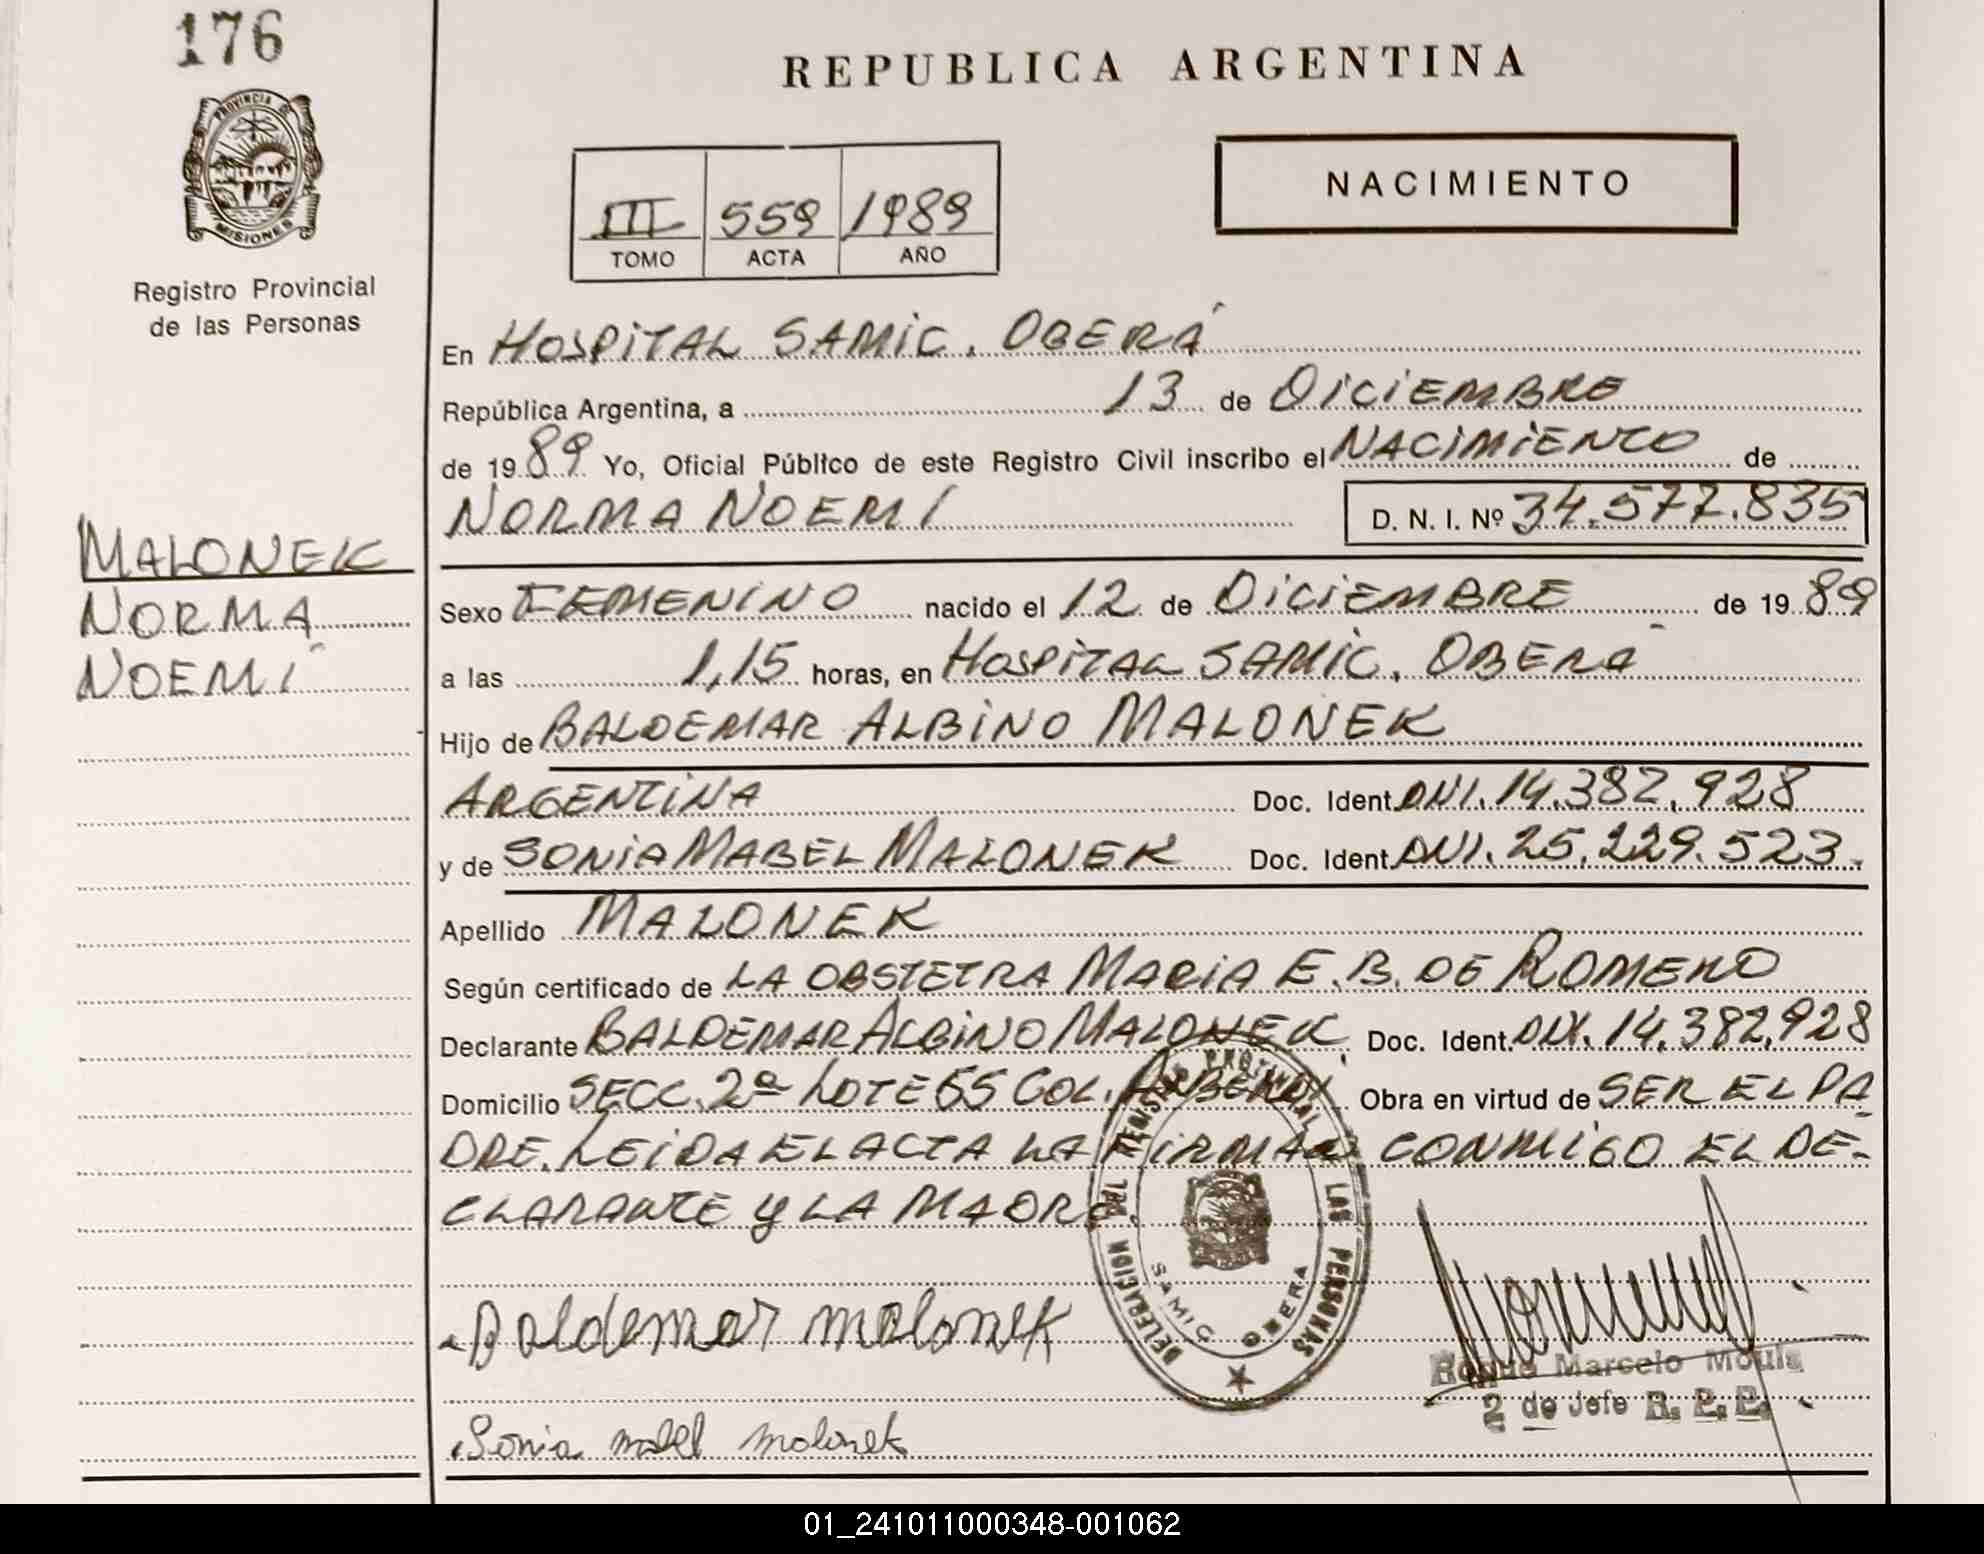 176
PROVINCIA DE
MISIONES
Registro Provincial
de las Personas
MALONEK
NORMA
NOEMÍ
REPUBLICA ARGENTINA
III 559 1989
TOMO ACTA AÑO
NACIMIENTO
En HOSPITAL SAMIC. OBERÁ
República Argentina, a 13 de DICIEMBRE
de 1989 Yo, Oficial Público de este Registro Civil inscribo el NACIMIENTO de
NORMA NOEMÍ D. N. I. Nº 34.577.835
Sexo FEMENINO nacido el 12 de DICIEMBRE de 1989
a las 1,15 horas, en HOSPITAL SAMIC. OBERÁ
Hijo de BALDEMAR ALBINO MALONEK
ARGENTINA Doc. Ident. DNI. 14.382.928
y de SONIA MABEL MALONEK Doc. Ident. DNI. 25.229.523.
Apellido MALONEK
Según certificado de LA OBSTETRA MARIA E. B. DE ROMERO
Declarante BALDEMAR ALBINO MALONEK Doc. Ident. DNI. 14.382.928
Domicilio SECC. 2ª LOTE 65 COL. Obra en virtud de SER EL PA
DRE. LEIDA EL ACTA LA FIRMAN CONMIGO EL DE-
CLARANTE Y LA MADRE.
DELEGACION DEL REGISTRO PROVINCIAL DE LAS PERSONAS
SAMIC OBERA
Baldemar malonek
Roque Marcelo
2 de Jefe R. P. P.
Sonia mabel malonek
01_241011000348-001062